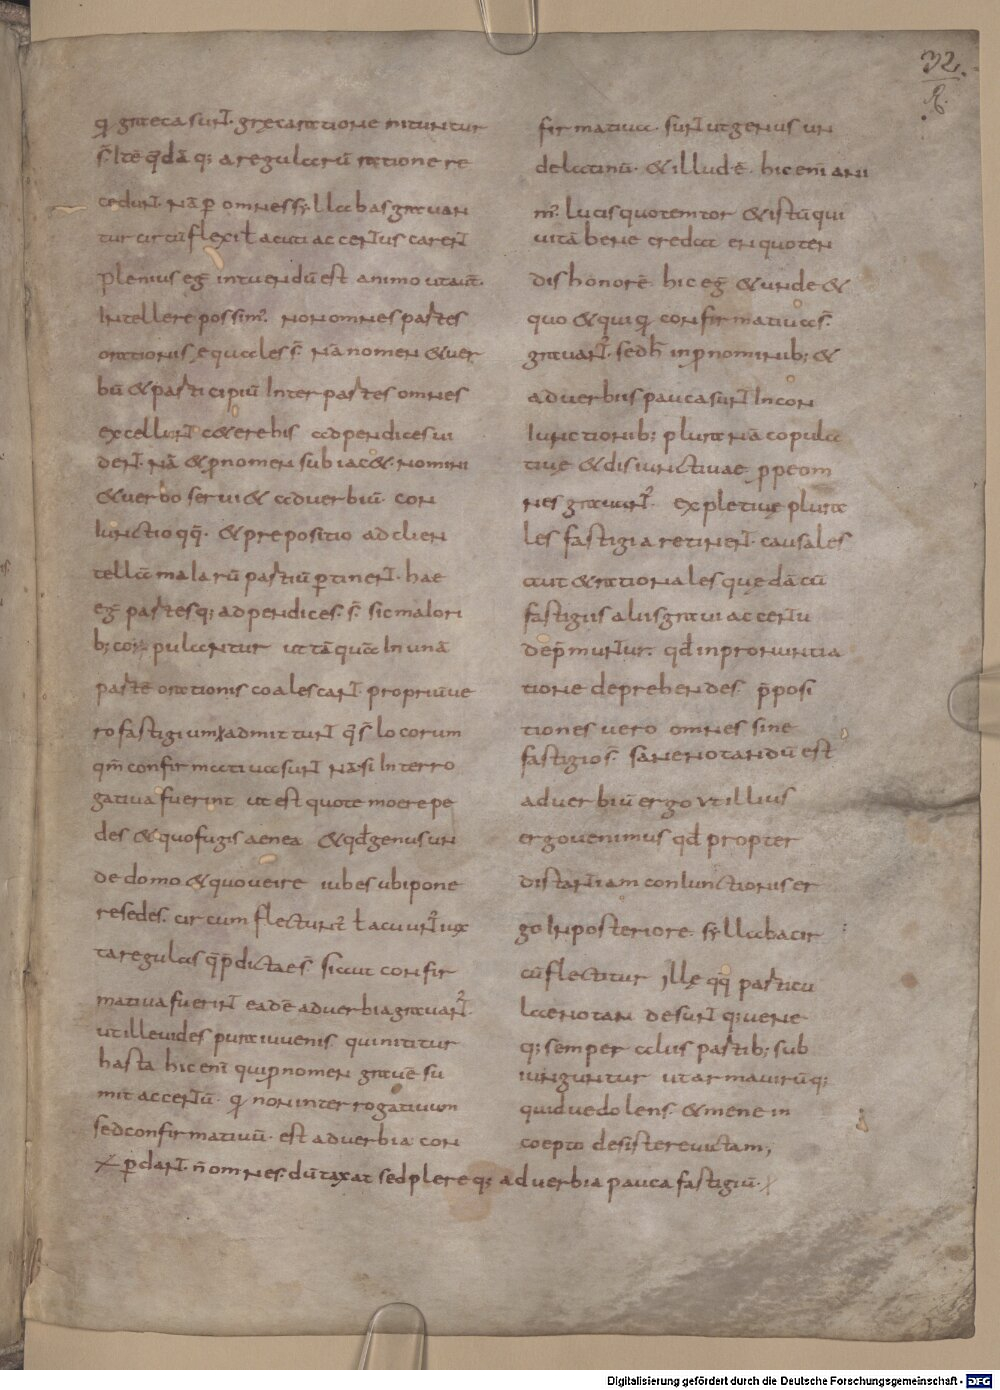 32.
q̄ greca sunt. gręca ratione nituntur
s̄. Itē q̄dā q; a regularū ratione re
cedunt. nā ꝑ omnes syllabas gravan
tur circūflexi ł acuti accentus carent
plenius eḡ intuendū est animo ut aut̄.
Intellere possim̄. non omnes partes
orationis ęquales s̄. nā nomen & ver
bū & participiū Inter partes omnes
excellunt cetere his adpendices vi
dent. nā & p̄nomen subiac& nomini
& verbo servi& adverbiū. con
Iunctio qq̄. & prepositio ad clien
tellā malarū partiū ꝑtinent. hae
eḡ partes q; adpendices s̄. sic malori
b; cor pulantur ut tā quā In unā
partē orationis coalescant. propriū ve
ro fastigium admittunt q̄ s̄ locorum
qm̄ confirmativa sunt nā si Interro
gativa fuerint ut est quo te moere pe
des & quo fugis aenea & qđ genus un
de domo & quo veire iubes ubi pone
re sedes. circumflectunt̄ ł acuunt̄ iux
ta regulas q̄ p̄dictae s̄. sicut confir
mativa fuerint eadē adverbia gravant̄.
ut ille vides pura iuvenis qui nititur
hasta hic enī qui p̄nomen gravē su
mit accentū. q̄ non interrogativum
sed confirmativū. est adverbia con
firmativa. sunt ut genus un
de latinū. & illud ē. hic enī ani
m̄. lucis quo temtor & istū qui
vitā bene credat en quo ten
dis honorē hic eḡ & unde &
quo & qui q̄ confirmativa s̄.
gravant̄. sed h̄ in p̄nominib; &
adverbiis pauca sunt In con
Iunctionib; plura nā copula
tivę & disiunctivae p̄peom
nes gravant̄. expletivę plura
les fastigia retinent. causales
aut & rationales quędā cū
fastigiis aliis gravi accentu
dep̄muntur. qđ in pronuntia
tione deprehendes. p̄posi
tiones vero omnes sine
fastigio s̄. sane notandū est
adverbiū ergo ut illius
ergo venimus qđ propter
distantiam coniunctionis er
go In posteriore syllaba cir
cūflectitur Illę qq̄ particu
lae notan de sunt q; ve ne
q; semper aliis partib; sub
iunguntur ut arma virūq;
quid ve dolens. & mene in
coepto desistere victam;
ꝑdant. n̄ omnes. dūtaxat sed plereq; adverbia pauca fastigiū.
Digitalisierung gefördert durch die Deutsche Forschungsgemeinschaft - DFG